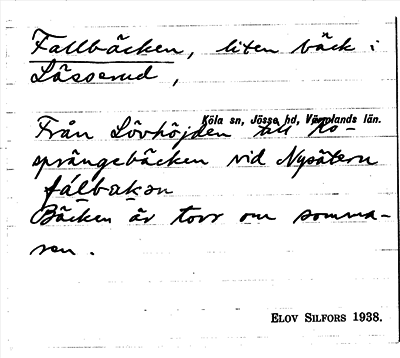 Fallbäcken, liten bäck i
Lässerud,
Köla sn, Jösse hd, Värmlands län.
Från Lövhöjden till Ko-
sprängebäcken vid Nysätern
fálbækən
Bäcken är torr om somma-
ren.
ELOV SILFORS 1938.